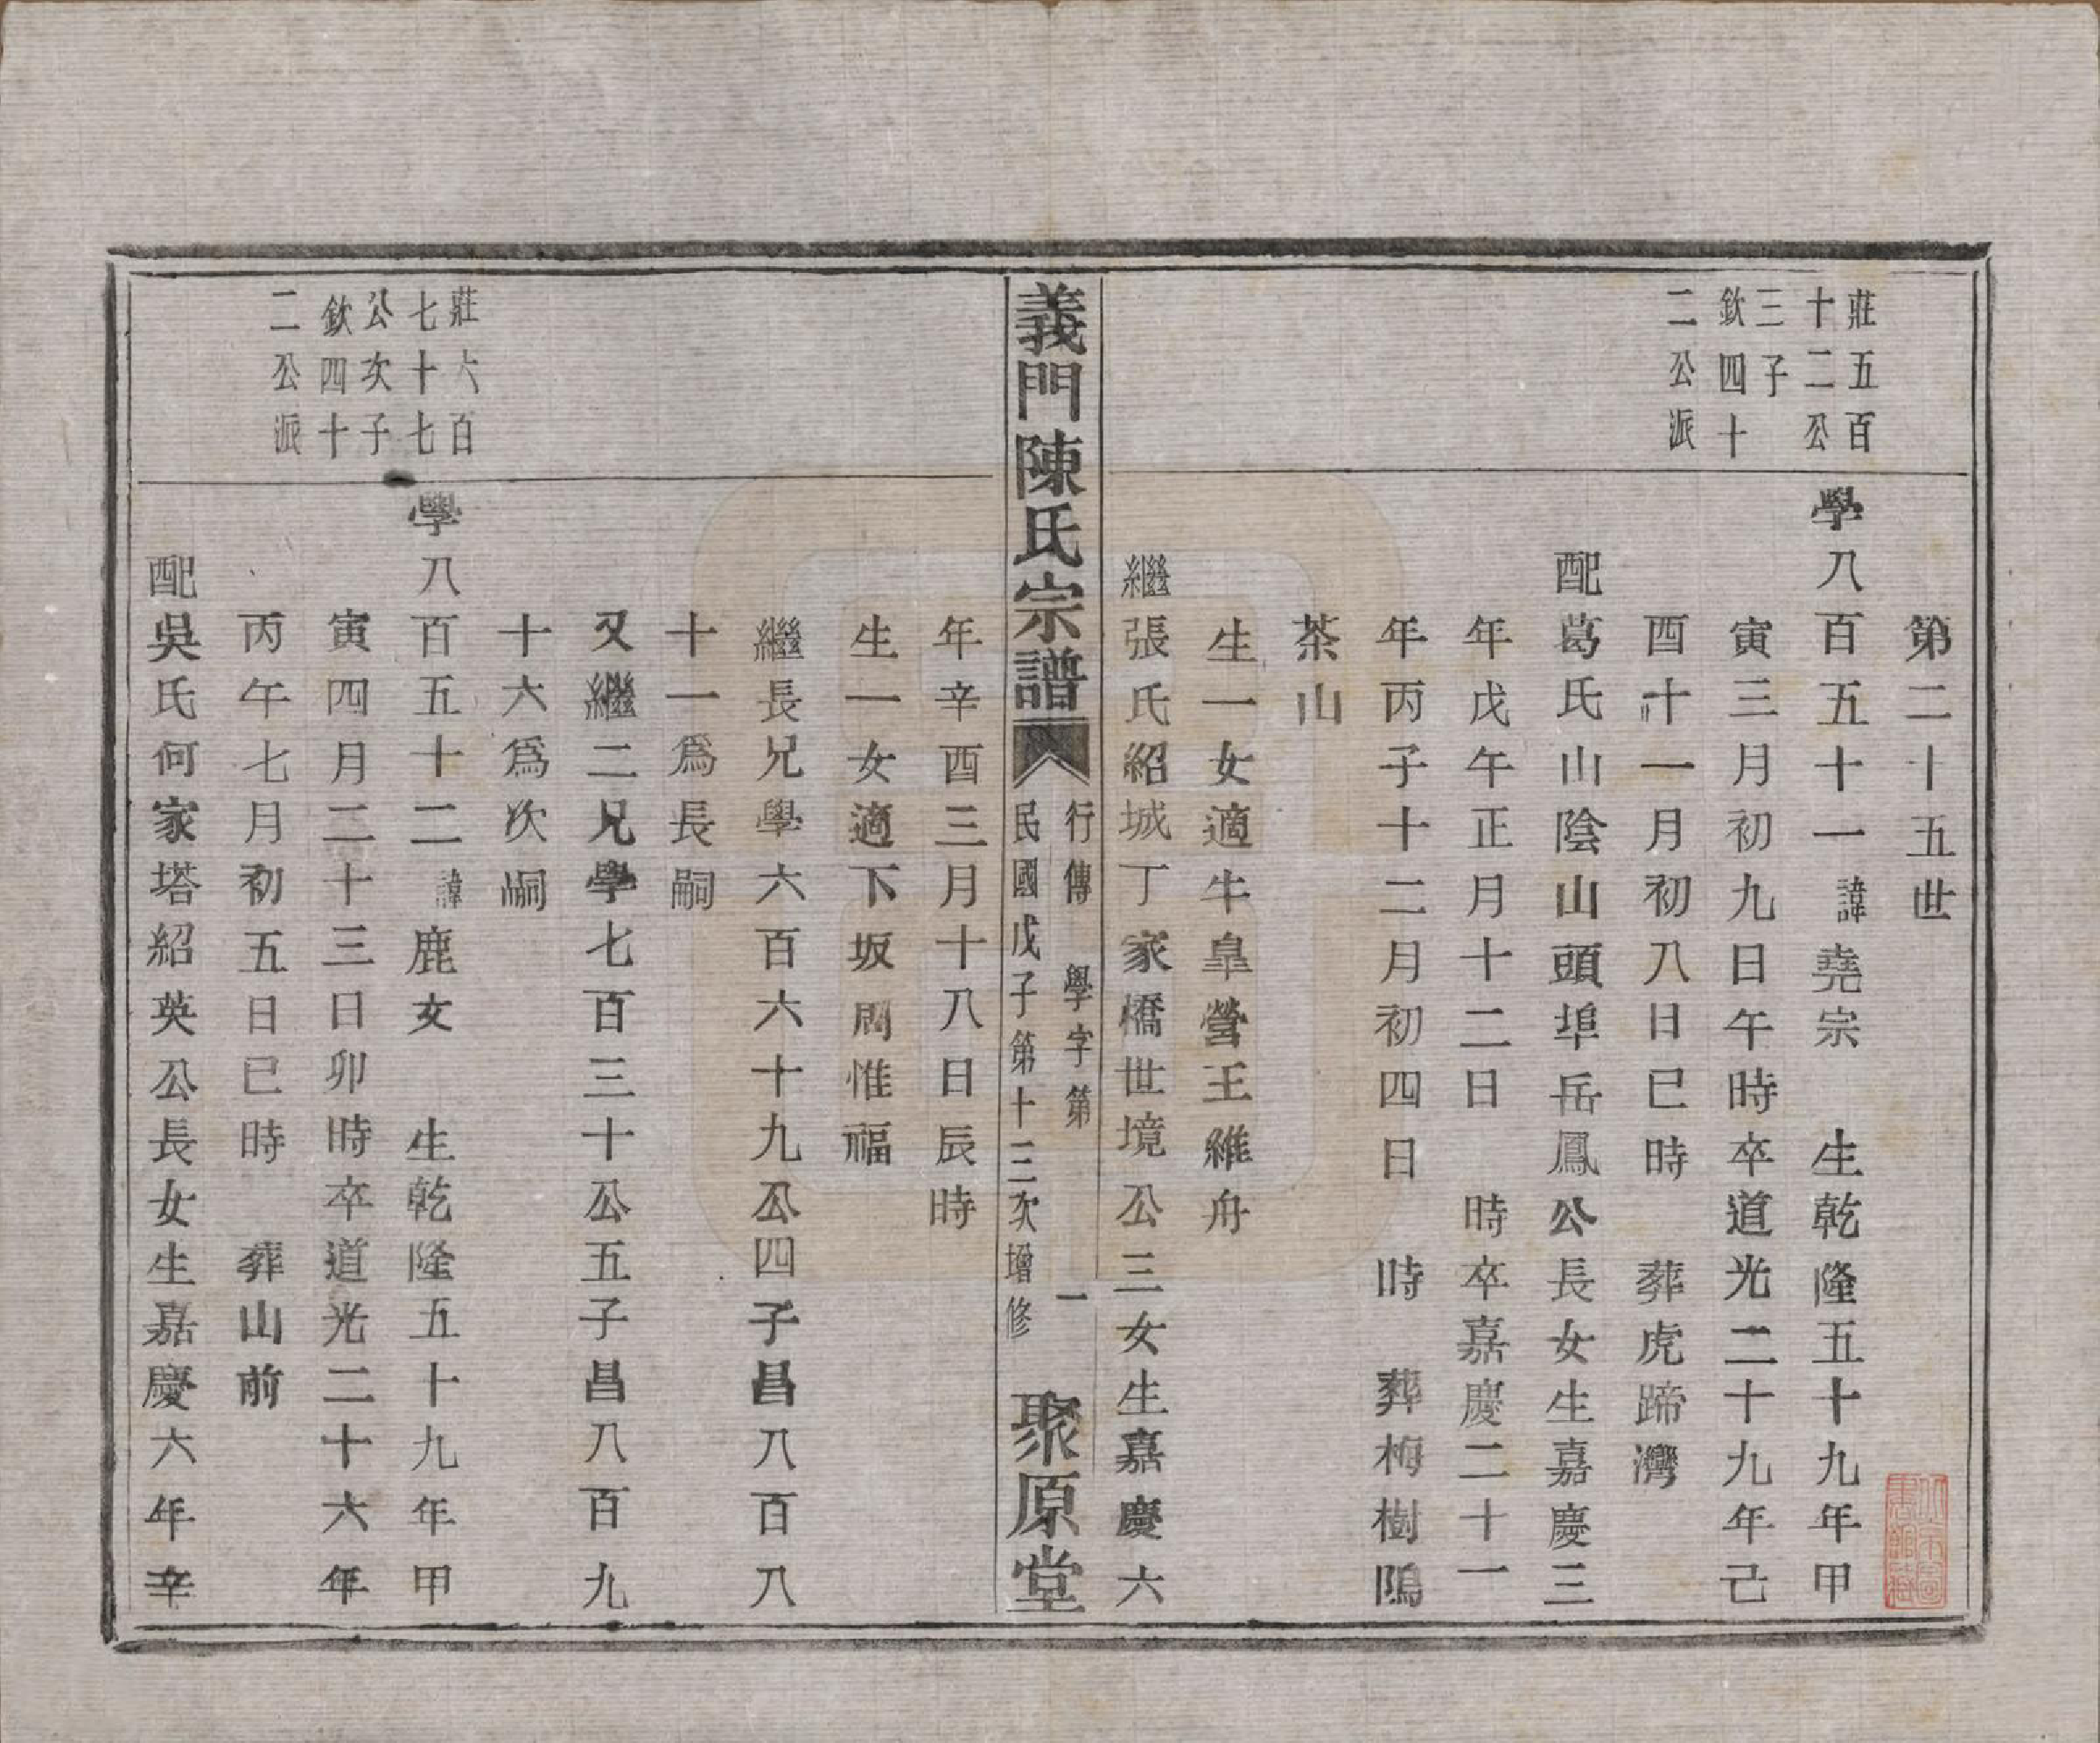 第二十五世
莊五百
十二公
三子
欽四十
二公派
學八百五十一諱堯宗 生乾隆五十九年甲
寅三月初九日午時卒道光二十九年己
酉十一月初八日巳時 葬虎蹄灣
配葛氏山陰山頭埠岳鳳公長女生嘉慶三
年戊午正月十二日 時卒嘉慶二十一
年丙子十二月初四日 時 葬梅樹隖
茶山
生一女適牛臯營王維舟
繼張氏紹城丁家橋世境公三女生嘉慶六
義門陳氏宗譜
行傳 學字第 一
民國戊子第十三次增修
聚原堂
年辛酉三月十八日辰時
生一女適下坂周惟福
繼長兄學六百六十九公四子昌八百八
十一爲長嗣
又繼二兄學七百三十公五子昌八百九
十六爲次嗣
莊六百
七十七
公次子
欽四十
二公派
學八百五十二諱鹿女 生乾隆五十九年甲
寅四月二十三日卯時卒道光二十六年
丙午七月初五日巳時 葬山前
配吳氏何家塔紹英公長女生嘉慶六年辛